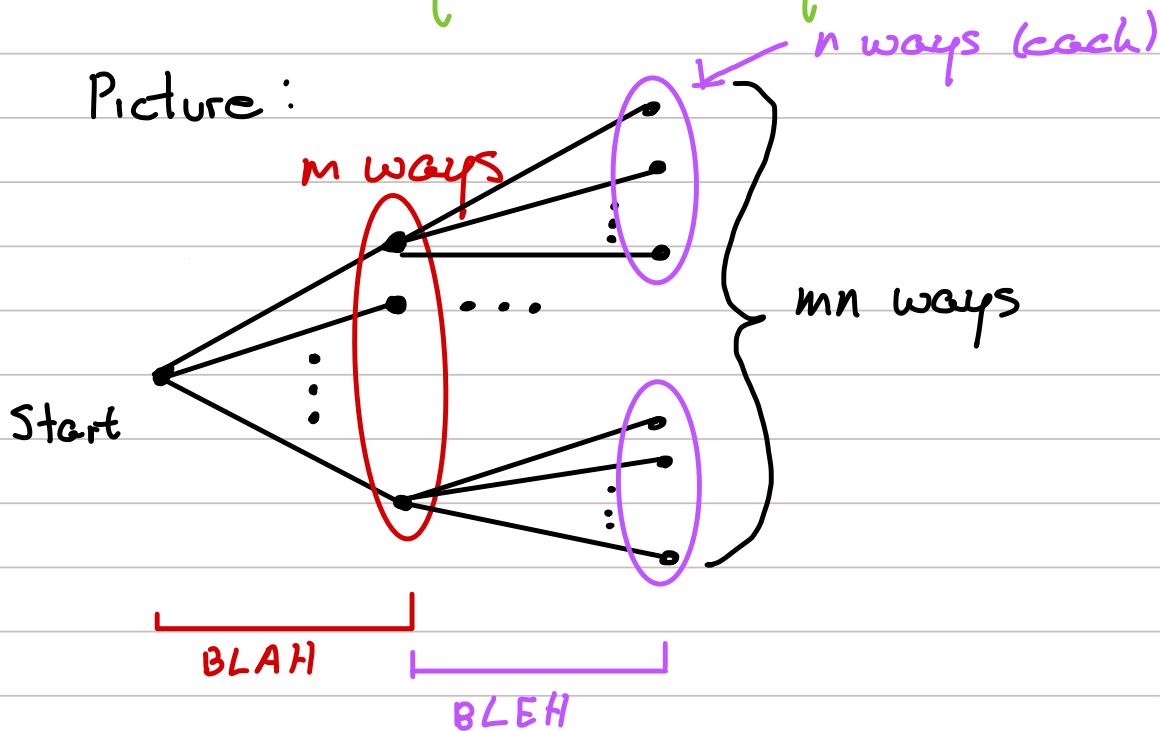 n ways (each)
Picture:
m ways
mn ways
Start
BLAH
BLEH